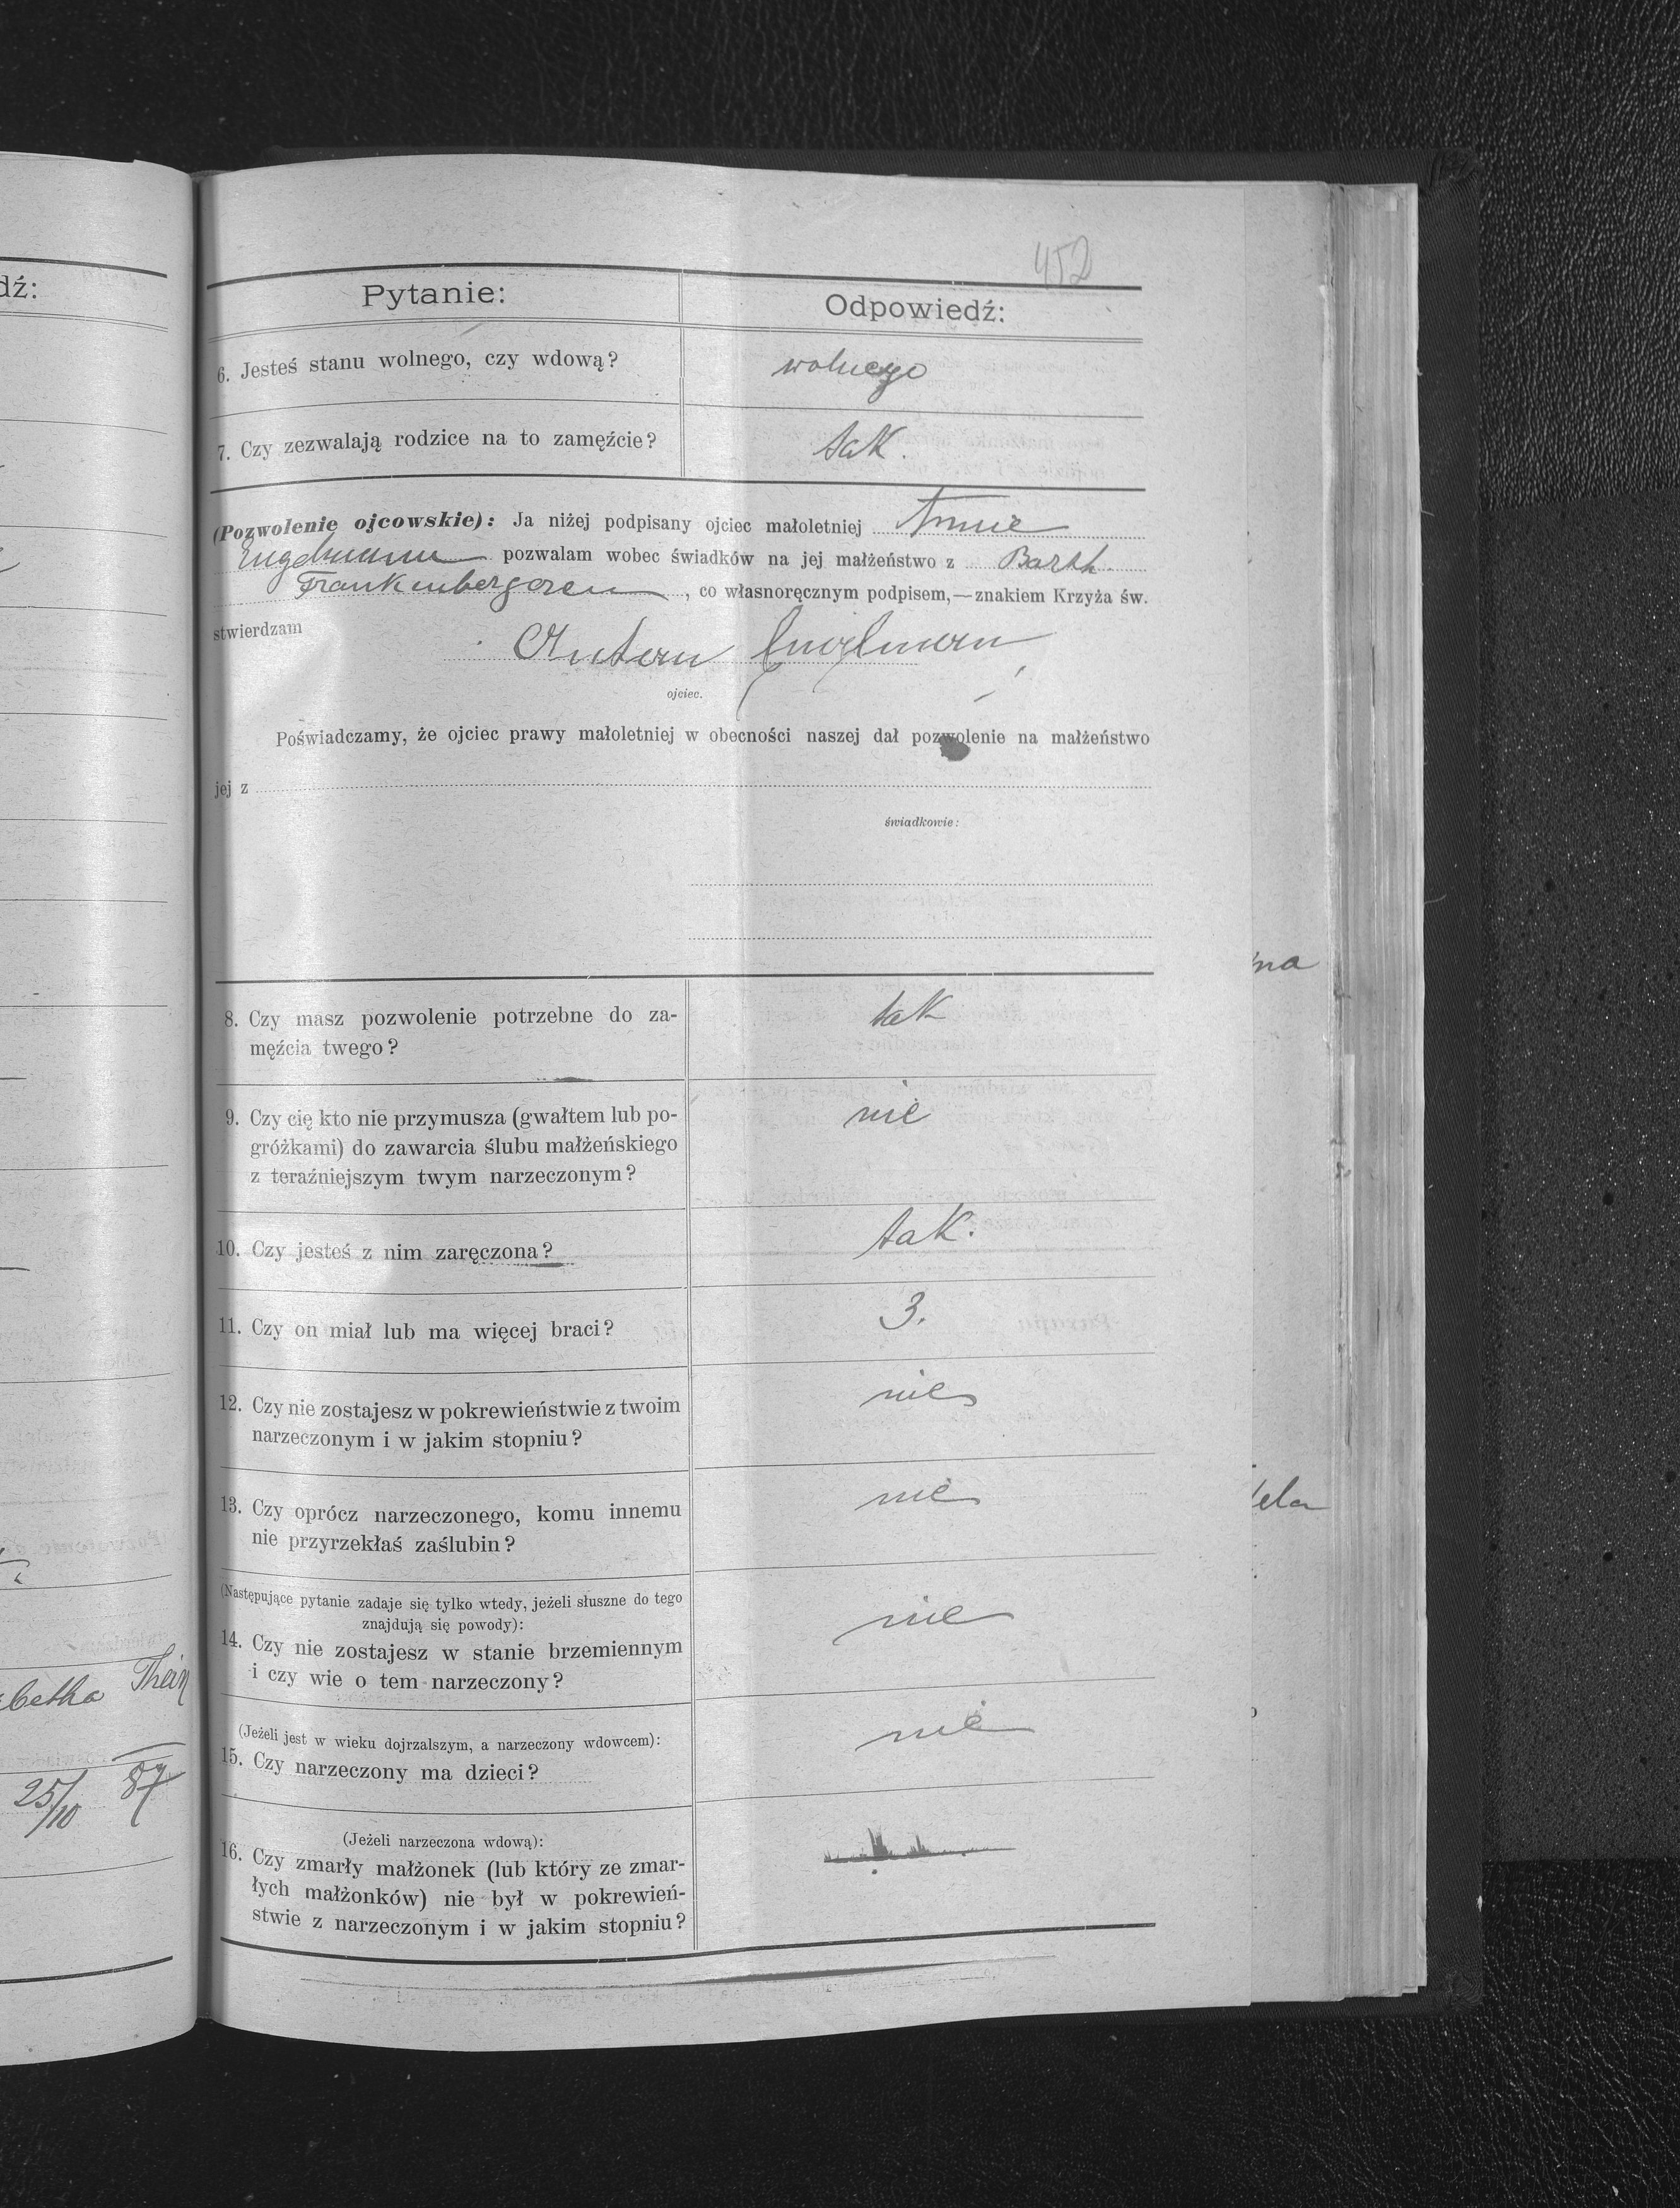 452
dź:
Pytanie:
Odpowiedź:
6. Jesteś stanu wolnego, czy wdową?
wolnego
7. Czy zezwalają rodzice na to zamęźcie?
tak.
(Pozwolenie ojcowskie): Ja niżej podpisany ojciec małoletniej Annie
Engelmann pozwalam wobec świadków na jej małżeństwo z Barth.
Frankenbergerem, co własnoręcznym podpisem,—znakiem Krzyża św.
stwierdzam
Antoni Engelmann
ojciec.
Poświadczamy, że ojciec prawy małoletniej w obecności naszej dał pozwolenie na małżeństwo
jej z
świadkowie:
8. Czy masz pozwolenie potrzebne do za-
męźcia twego?
tak
9. Czy cię kto nie przymusza (gwałtem lub po-
gróżkami) do zawarcia ślubu małżeńskiego
z teraźniejszym twym narzeczonym?
nie
10. Czy jesteś z nim zaręczona?
tak.
11. Czy on miał lub ma więcej braci?
3.
12. Czy nie zostajesz w pokrewieństwie z twoim
narzeczonym i w jakim stopniu?
nie
13. Czy oprócz narzeczonego, komu innemu
nie przyrzekłaś zaślubin?
nie
(Następujące pytanie zadaje się tylko wtedy, jeżeli słuszne do tego
znajdują się powody):
14. Czy nie zostajesz w stanie brzemiennym
i czy wie o tem narzeczony?
nie
(Jeżeli jest w wieku dojrzalszym, a narzeczony wdowcem):
15. Czy narzeczony ma dzieci?
nie
(Jeżeli narzeczona wdową):
16. Czy zmarły małżonek (lub który ze zmar-
łych małżonków) nie był w pokrewień-
stwie z narzeczonym i w jakim stopniu?
25/10 87